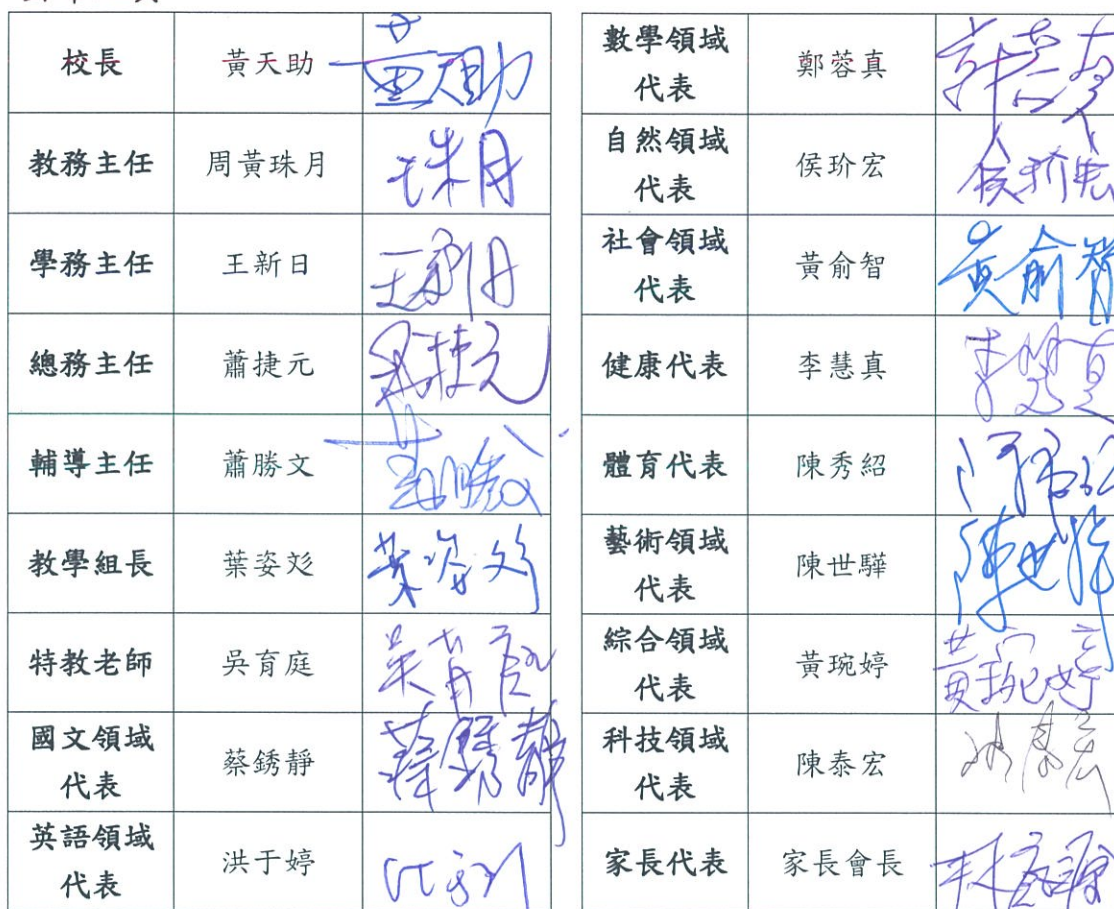 校長 黃天助 黃天助
教務主任 周黃珠月 珠月
學務主任 王新日 王新日
總務主任 蕭捷元 蕭捷元
輔導主任 蕭勝文 蕭勝文
教學組長 葉姿彣 葉姿彣
特教老師 吳育庭 吳育庭
國文領域
代表 蔡銹靜 蔡銹靜
英語領域
代表 洪于婷
數學領域
代表 鄭蓉真
自然領域
代表 侯玠宏 侯玠宏
社會領域
代表 黃俞智 黃俞智
健康代表 李慧真 李慧真
體育代表 陳秀紹
藝術領域
代表 陳世驊 陳世驊
綜合領域
代表 黃琬婷 黃琬婷
科技領域
代表 陳泰宏
家長代表 家長會長